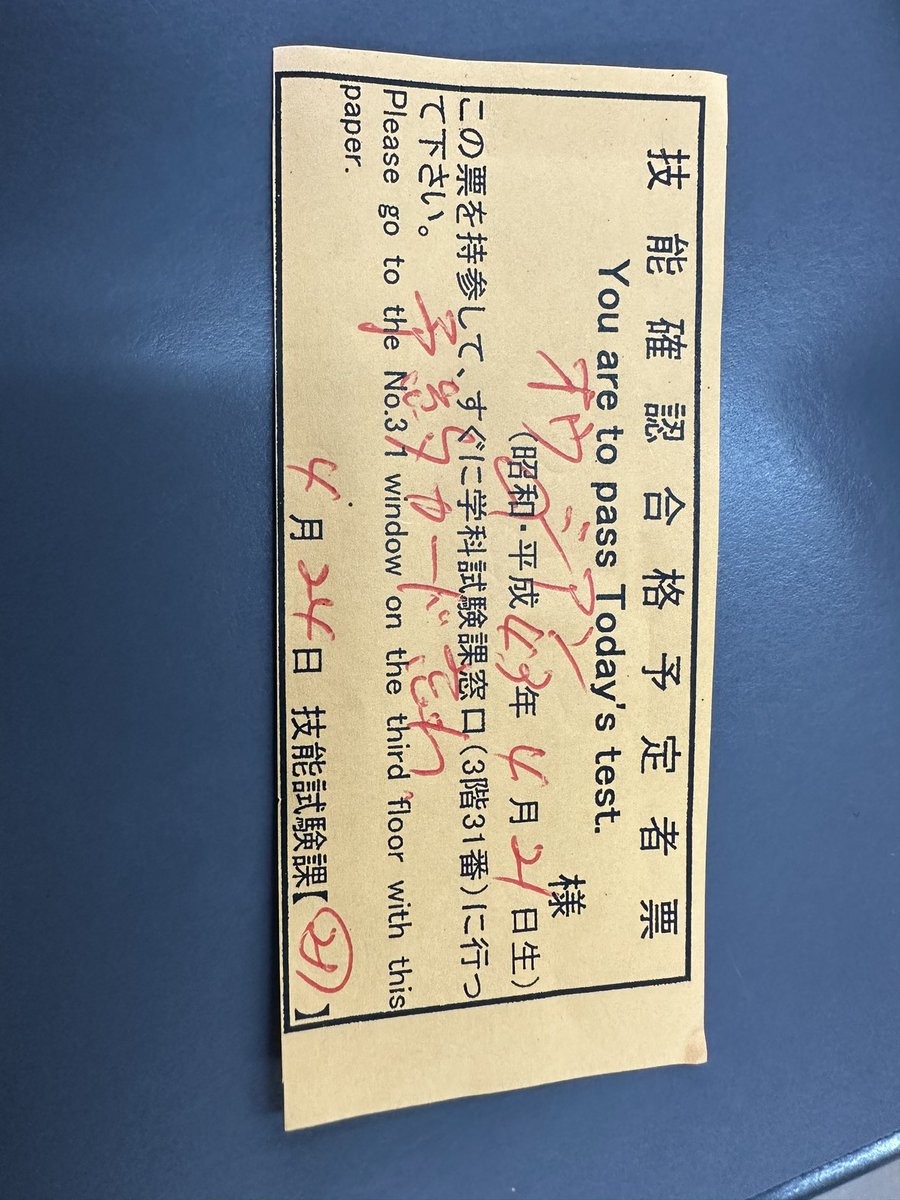 技能確認合格予定者票
You are to pass Today's test.
様
(昭和・平成 43年 4月 21日生)
この票を持参して、すぐに学科試験課窓口(3階31番)に行っ
て下さい。
Please go to the No.31 window on the third floor with this
paper.
4月24日 技能試験課【21】